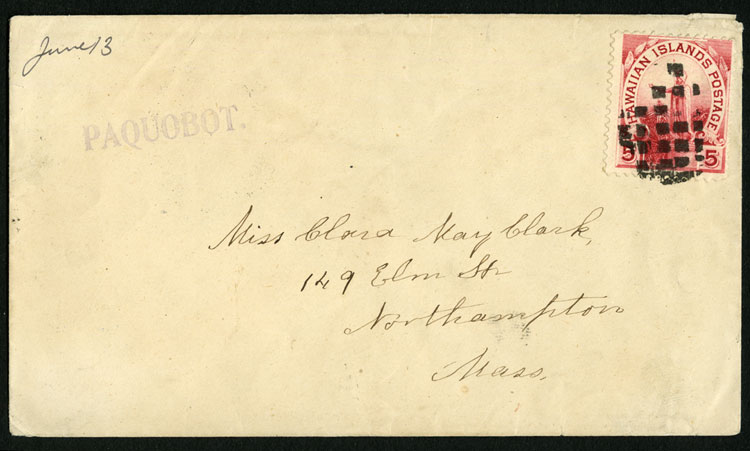 June 13
PAQUOBOT.
HAWAIIAN ISLANDS POSTAGE
5 5
Miss Clara May Clark,
149 Elm St
Northampton
Mass.